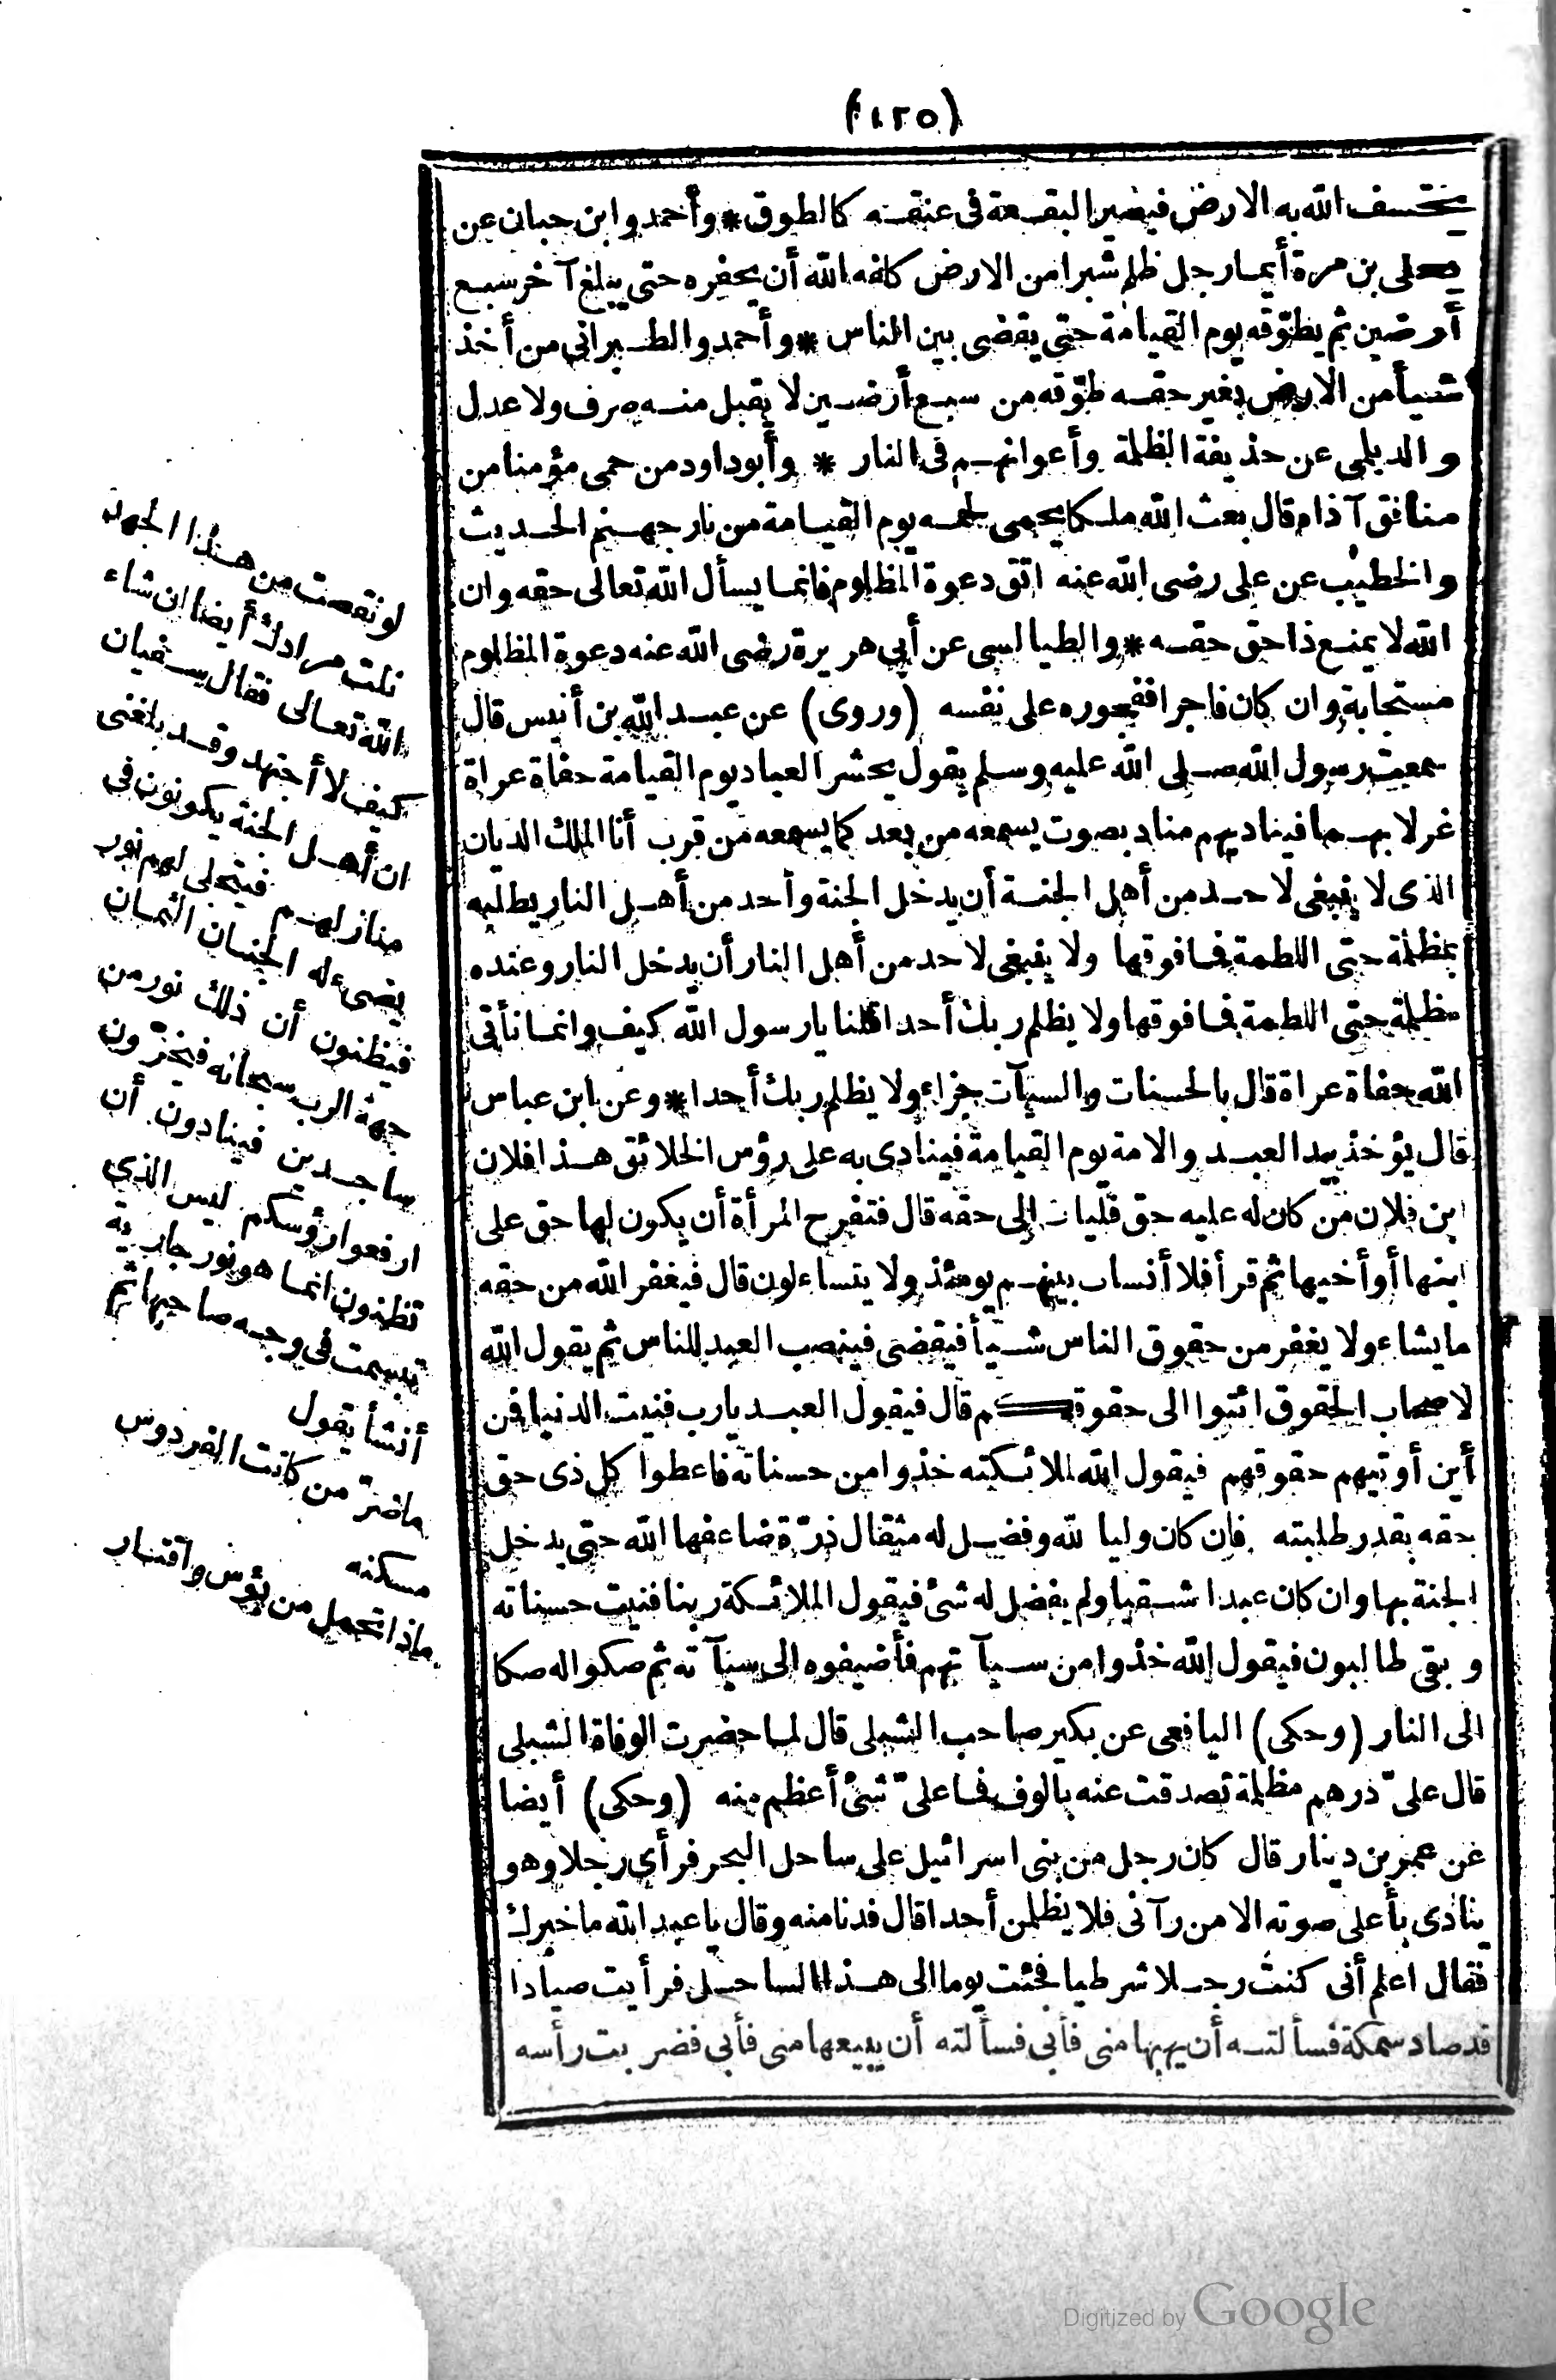 (١٢٥)
يخسف الله به الارض فيصير البقعة في عنقه كالطوق * وأحمد وابن حبان عن
يعلى بن مرة أيما رجل ظلم شبرا من الارض كلفه الله أن يحفره حتى يبلغ آخر سبع
أرضين ثم يطوّقه يوم القيامة حتى يقضى بين الناس * وأحمد والطبراني من أخذ
شيأ من الارض بغير حقه طوّقه من سبع أرضين لا يقبل منه صرف ولا عدل
والديلمى عن حذيفة الظلمة وأعوانهم فى النار * وأبو داود من حمى مؤمنا من
منافق آذاه قال بعث الله ملكا يحمى لحمه يوم القيامة من نار جهنم الحديث
والخطيب عن على رضى الله عنه اتق دعوة المظلوم فانما يسأل الله تعالى حقه وان
الله لا يمنع ذا حق حقه * والطيالسى عن أبى هريرة رضى الله عنه دعوة المظلوم
مستجابة وان كان فاجرا ففجوره على نفسه (وروى) عن عبد الله بن أنيس قال
سمعت رسول الله صلى الله عليه وسلم يقول يحشر العباد يوم القيامة حفاة عراة
غرلا بهما فيناديهم مناد بصوت يسمعه من بعد كما يسمعه من قرب أنا الملك الديان
الذى لا ينبغى لاحد من أهل الجنة أن يدخل الجنة وأحد من أهل النار يطلبه
بمظلمة حتى اللطمة فما فوقها ولا ينبغى لاحد من أهل النار أن يدخل النار وعنده
مظلمة حتى اللطمة فما فوقها ولا يظلم ربك أحدا قلنا يا رسول الله كيف وانما نأتى
الله حفاة عراة قال بالحسنات والسيآت جزاء ولا يظلم ربك أحدا * وعن ابن عباس
قال يؤخذ بيد العبد والامة يوم القيامة فينادى به على رؤس الخلائق هذا فلان
ابن فلان من كان له عليه حق فليات الى حقه قال فتفرح المرأة أن يكون لها حق على
ابنها أو أخيها ثم قرأ فلا أنساب بينهم يومئذ ولا يتساءلون قال فيغفر الله من حقه
ما يشاء ولا يغفر من حقوق الناس شيأ فيقضى فينصب العبد للناس ثم يقول الله
لاصحاب الحقوق ائتوا الى حقوقكم قال فيقول العبد يا رب فنيت الدنيا فمن
أين أوتيهم حقوقهم فيقول الله لملائكته خذوا من حسناته فاعطوا كل ذى حق
حقه بقدر طلبته فان كان وليا لله وفضل له مثقال ذرّة ضاعفها الله حتى يدخل
الجنة بها وان كان عبدا شقيا ولم يفضل له شئ فيقول الملائكة ربنا فنيت حسناته
وبقى طالبون فيقول الله خذوا من سيآتهم فأضيفوه الى سيآته ثم صكوا له صكا
الى النار (وحكى) اليافعى عن بكير صاحب الشبلى قال لما حضرت الوفاة الشبلى
قال علىّ درهم مظلمة تصدقت عنه بألوف فما علىّ شئ أعظم منه (وحكى) أيضا
عن عمرو بن دينار قال كان رجل من بنى اسرائيل على ساحل البحر فرأى رجلا وهو
ينادى بأعلى صوته الا من رآنى فلا يظلمن أحدا قال فدنا منه وقال يا عبد الله ما خبرك
فقال اعلم أنى كنت رجلا شرطيا فجئت يوما الى هذا الساحل فرأيت صيادا
قد صاد سمكة فسألته أن يهبها منى فأبى فسألته أن يبيعها منى فأبى فضربت رأسه
لو نقصت من هذا الجهد
نلت مرادك أيضا ان شاء
الله تعالى فقال سفيان
كيف لا أجتهد وقد بلغنى
ان أهل الجنة يكونون فى
منازلهم فيتجلى لهم نور
يضىء له الجنان الثمان
فيظنون أن ذلك نور من
جهة الرب سبحانه فيخرّون
ساجدين فينادون أن
ارفعوا رؤسكم ليس الذي
تظنون انما هو نور جارية
تبسمت فى وجه صاحبها ثم
أنشأ يقول
ماضرّ من كانت الفردوس
مسكنه
ماذا تحمل من بؤس واقتار
Digitized by Google